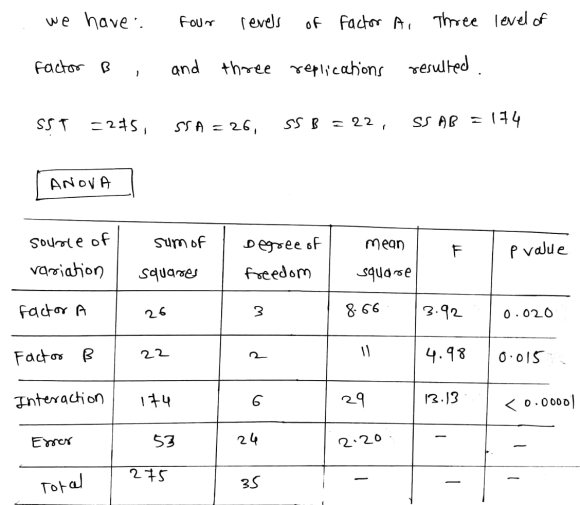 we have:. Four levels of Factor A, Three level of
Factor B , and three replications resulted.
SST = 275, SSA = 26, SS B = 22, SS AB = 174
ANOVA
source of variation sum of squares Degree of freedom mean square F P value
Factor A 26 3 8.66 3.92 0.020
Factor B 22 2 11 4.98 0.015
Interaction 174 6 29 13.13 < 0.00001
Error 53 24 2.20 - -
Total 275 35 - - -